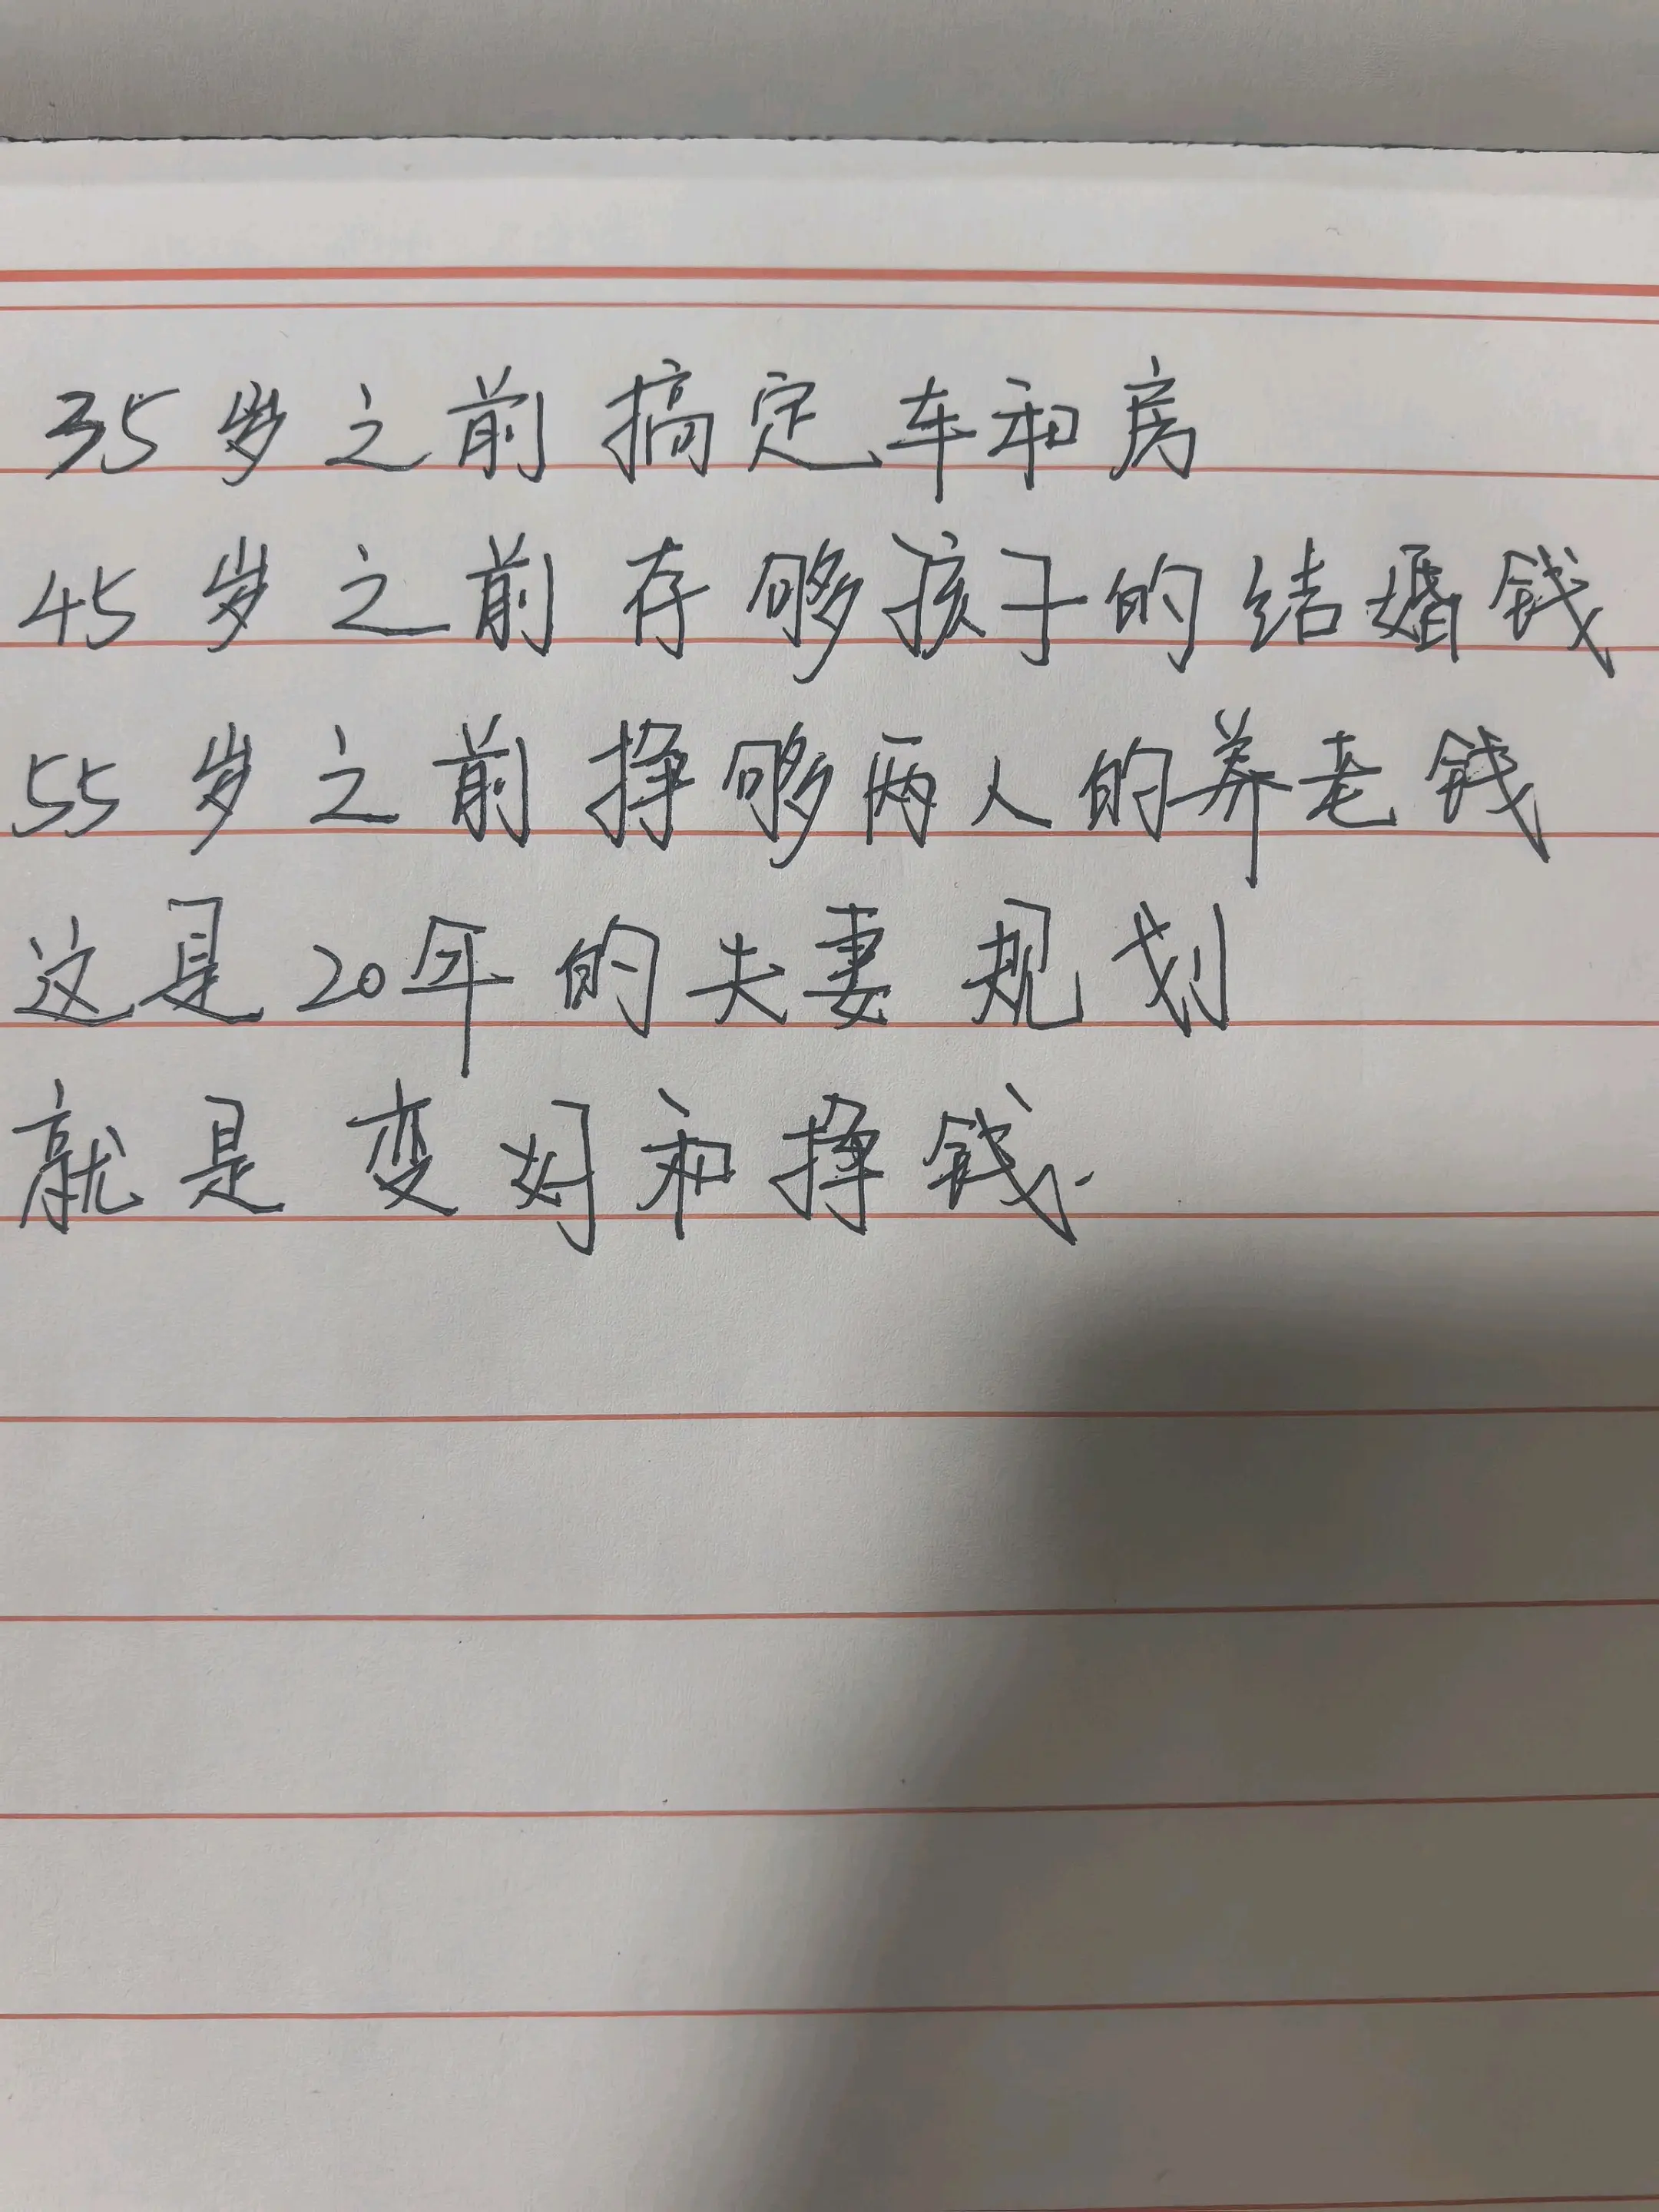 35岁之前搞定车和房
45岁之前存够孩子的结婚钱
55岁之前挣够两人的养老钱
这是20年的夫妻规划
就是变好和挣钱.